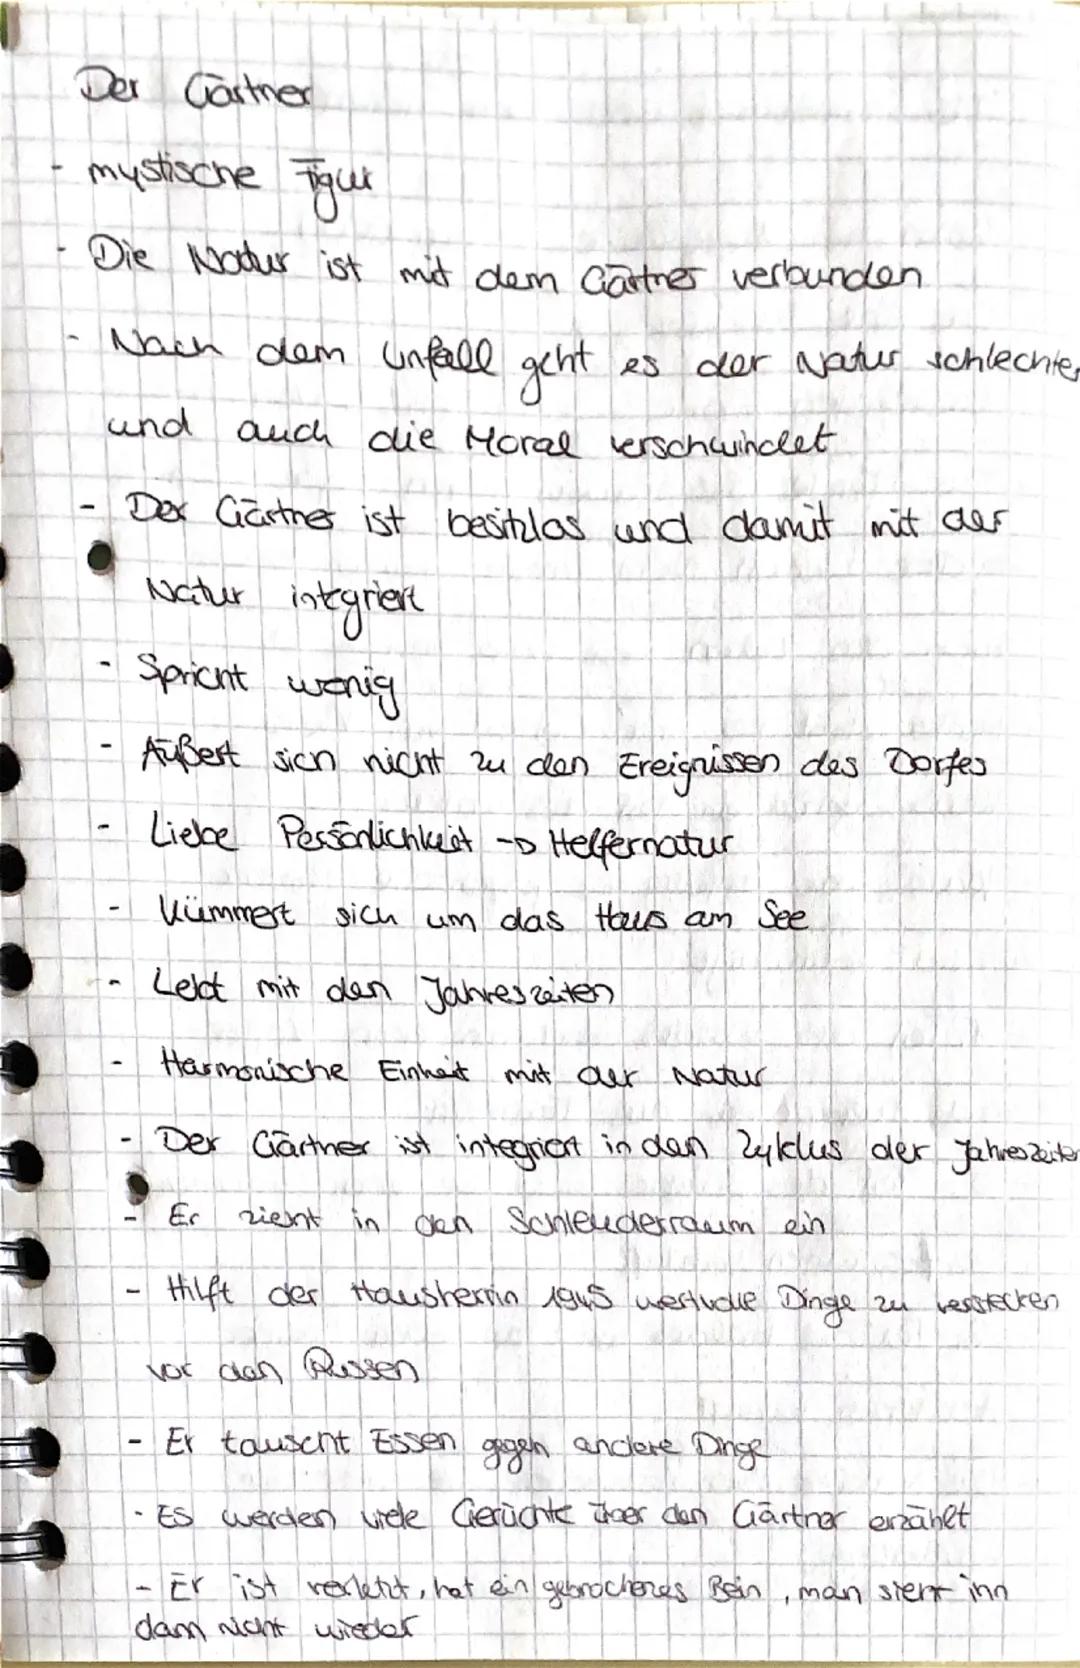 Der Gärtner
- mystische Figur
- Die Natur ist mit dem Gärtner verbunden
- Nach dem Unfall geht es der Natur schlechter
und auch die Moral verschwindet
- Der Gärtner ist besitzlos und damit mit der
Natur integriert
- Spricht wenig
- Äußert sich nicht zu den Ereignissen des Dorfes
- Liebe Persönlichkeit -> Helfernatur
- Kümmert sich um das Haus am See
- Lebt mit den Jahreszeiten
- Harmonische Einheit mit der Natur
- Der Gärtner ist integriert in den Zyklus der Jahreszeiten
- Er zieht in den Schleuderraum ein
- Hilft der Hausherrin 1945 wertvolle Dinge zu verstecken
vor den Russen
- Er tauscht Essen gegen andere Dinge
- Es werden viele Gerüchte über den Gärtner erzählt
- Er ist verletzt, hat ein gebrochenes Bein, man sieht ihn
dann nicht wieder